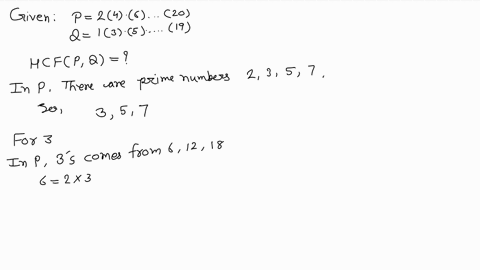 Given: P = 2(4)·(6)....(20)
Q = 1(3)·(5).....(19)
HCF(P, Q) = ?
In P, There are prime numbers 2, 3, 5, 7.
So, 3, 5, 7
For 3
In P, 3's comes from 6, 12, 18
6 = 2 × 3